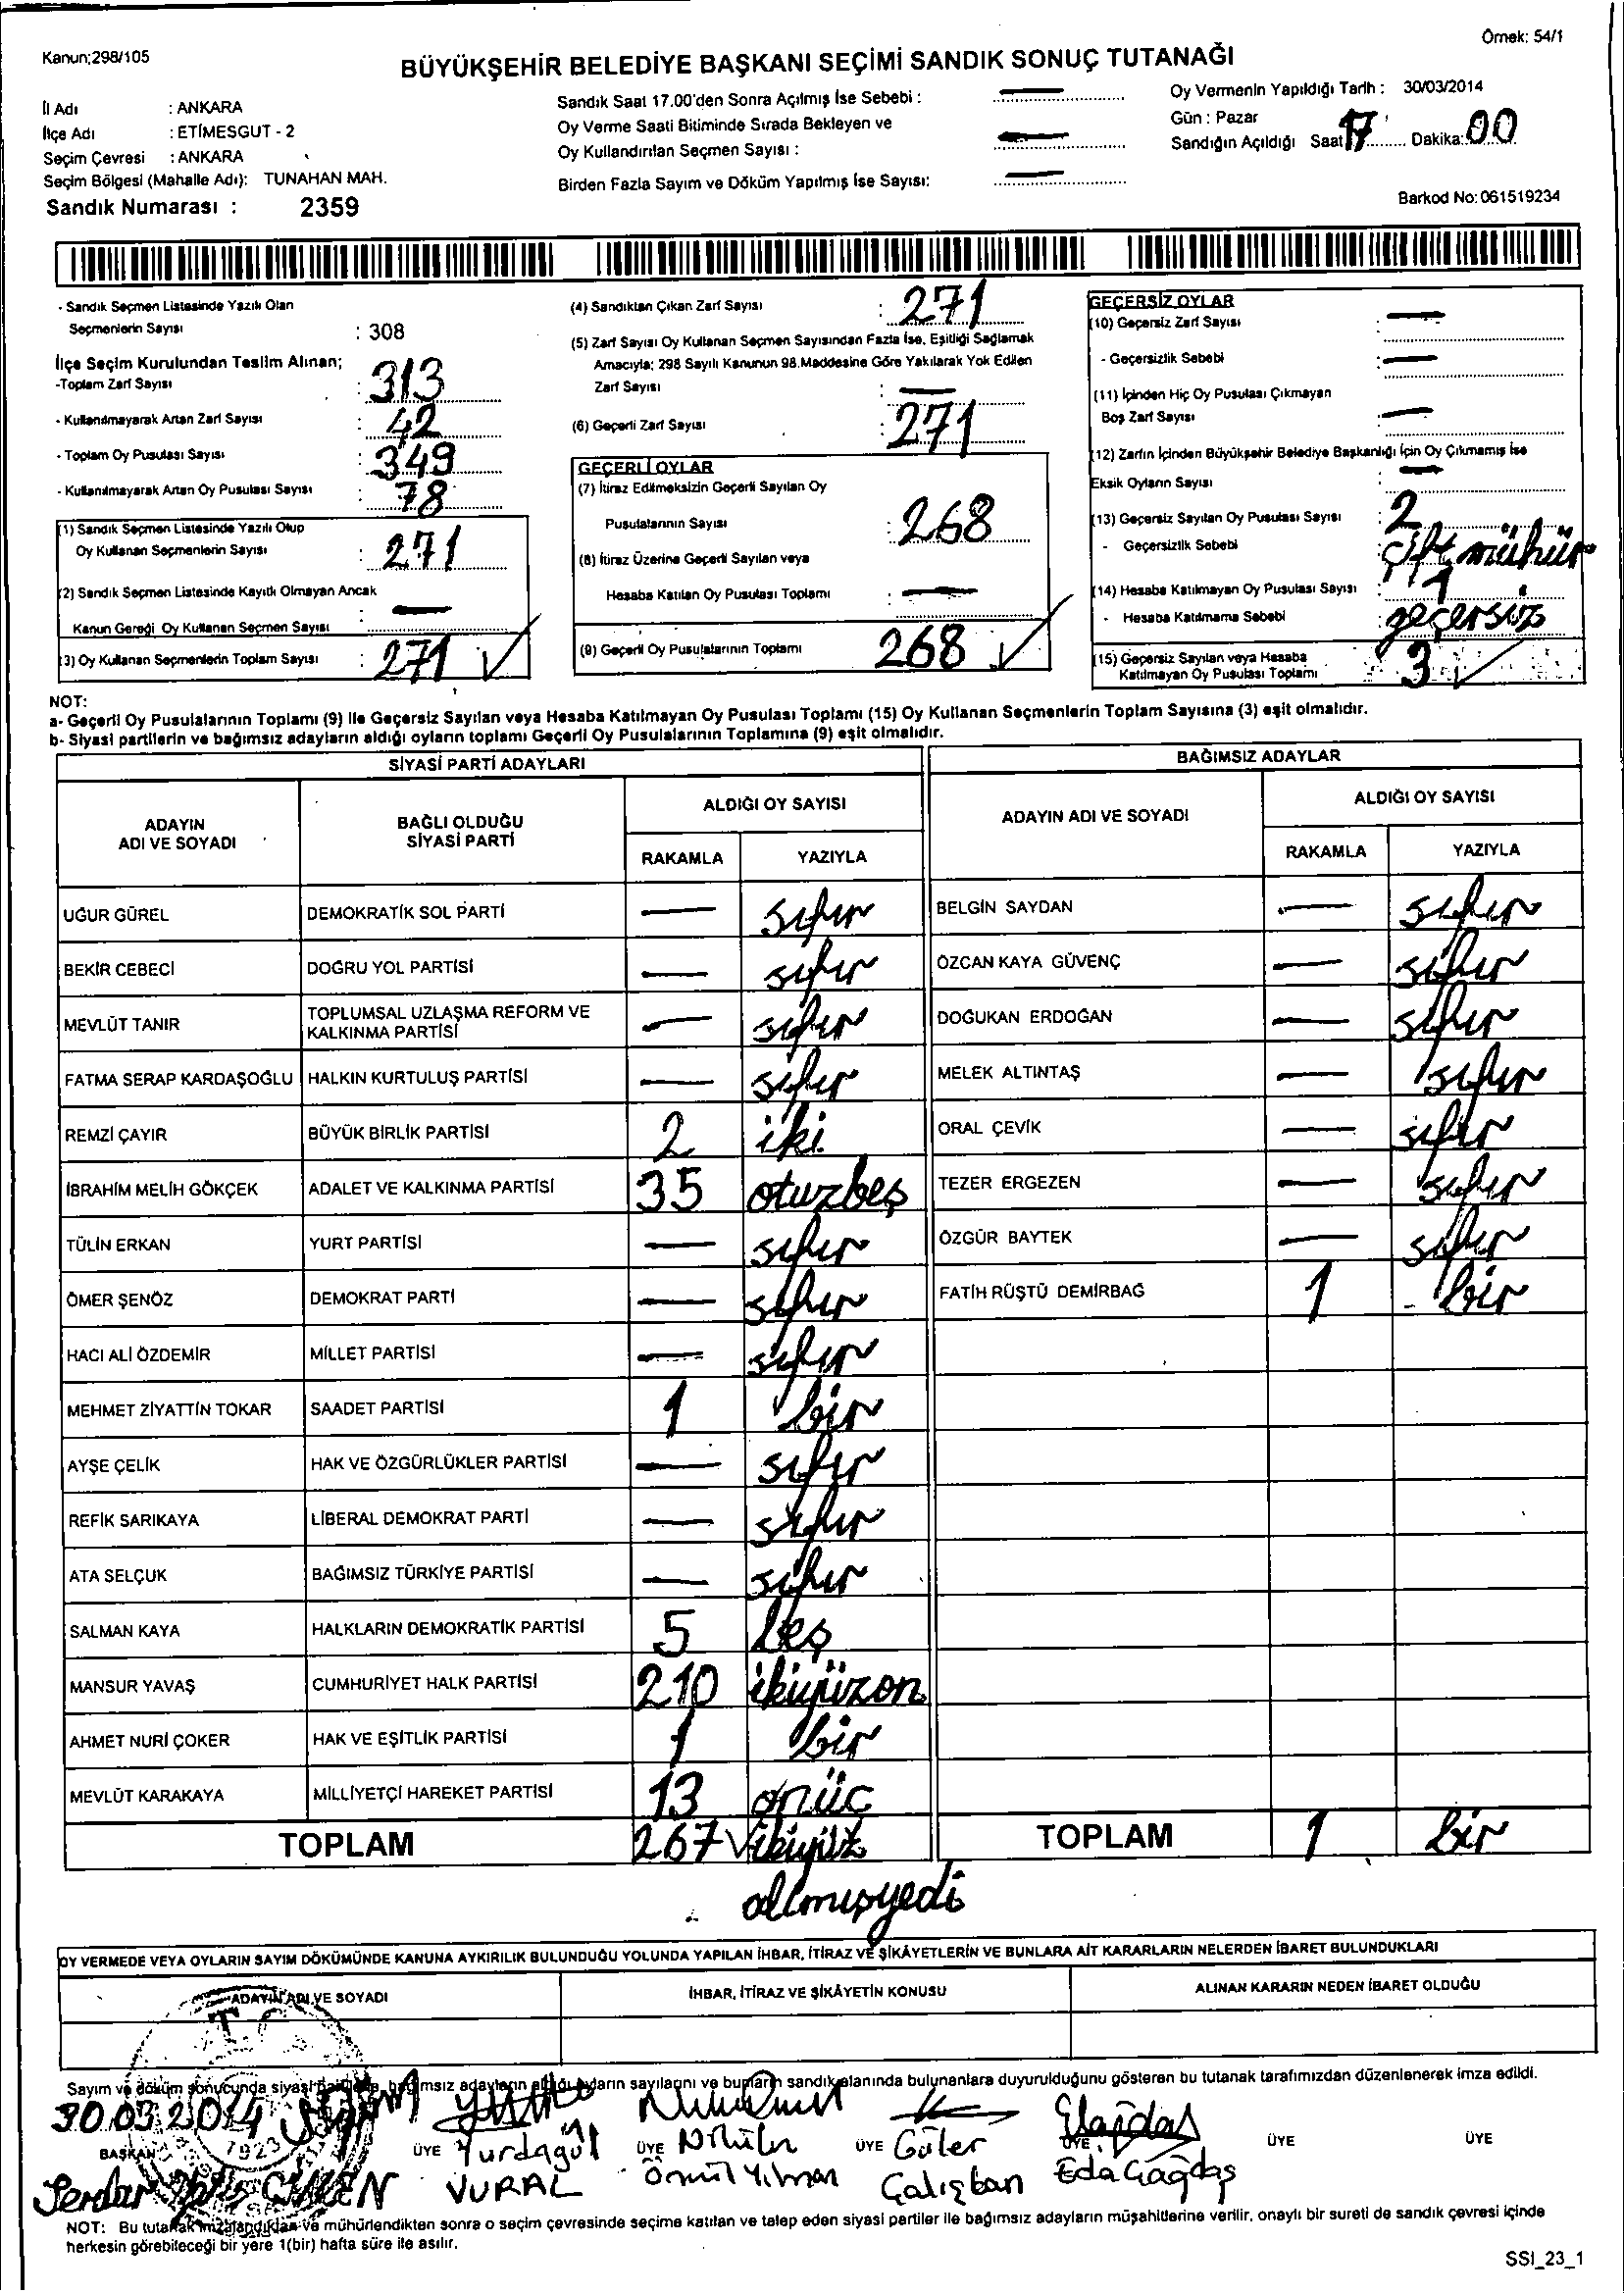 Kanun;298/105
Örnek: 54/1
BÜYÜKŞEHİR BELEDİYE BAŞKANI SEÇİMİ SANDIK SONUÇ TUTANAĞI
İl Adı : ANKARA
İlçe Adı : ETİMESGUT - 2
Seçim Çevresi : ANKARA
Seçim Bölgesi (Mahalle Adı): TUNAHAN MAH.
Sandık Numarası : 2359
Sandık Saat 17.00'den Sonra Açılmış İse Sebebi : —
Oy Verme Saati Bitiminde Sırada Bekleyen ve
Oy Kullandırılan Seçmen Sayısı : —
Birden Fazla Sayım ve Döküm Yapılmış İse Sayısı: —
Oy Vermenin Yapıldığı Tarih : 30/03/2014
Gün : Pazar
Sandığın Açıldığı Saat 17 Dakika: 00
Barkod No: 061519234
- Sandık Seçmen Listesinde Yazılı Olan
Seçmenlerin Sayısı : 308
İlçe Seçim Kurulundan Teslim Alınan;
-Toplam Zarf Sayısı : 313
- Kullanılmayarak Artan Zarf Sayısı : 42
- Toplam Oy Pusulası Sayısı : 349
- Kullanılmayarak Artan Oy Pusulası Sayısı : 78
(1) Sandık Seçmen Listesinde Yazılı Olup
Oy Kullanan Seçmenlerin Sayısı : 271
(2) Sandık Seçmen Listesinde Kayıtlı Olmayan Ancak
Kanun Gereği Oy Kullanan Seçmen Sayısı : —
(3) Oy Kullanan Seçmenlerin Toplam Sayısı : 271 ✓
(4) Sandıktan Çıkan Zarf Sayısı : 271
(5) Zarf Sayısı Oy Kullanan Seçmen Sayısından Fazla İse, Eşitliği Sağlamak
Amacıyla; 298 Sayılı Kanunun 98.Maddesine Göre Yakılarak Yok Edilen
Zarf Sayısı : —
(6) Geçerli Zarf Sayısı : 271
GEÇERLİ OYLAR
(7) İtiraz Edilmeksizin Geçerli Sayılan Oy
Pusulalarının Sayısı : 268
(8) İtiraz Üzerine Geçerli Sayılan veya
Hesaba Katılan Oy Pusulası Toplamı : —
(9) Geçerli Oy Pusulalarının Toplamı 268 ✓
GEÇERSİZ OYLAR
(10) Geçersiz Zarf Sayısı : —
- Geçersizlik Sebebi : —
(11) İçinden Hiç Oy Pusulası Çıkmayan
Boş Zarf Sayısı : —
(12) Zarfın İçinden Büyükşehir Belediye Başkanlığı İçin Oy Çıkmamış İse
Eksik Oyların Sayısı : —
(13) Geçersiz Sayılan Oy Pusulası Sayısı : 2
- Geçersizlik Sebebi : Çift mühür
(14) Hesaba Katılmayan Oy Pusulası Sayısı : 1
- Hesaba Katılmama Sebebi : geçersiz
(15) Geçersiz Sayılan veya Hesaba
Katılmayan Oy Pusulası Toplamı : 3 ✓
NOT:
a- Geçerli Oy Pusulalarının Toplamı (9) ile Geçersiz Sayılan veya Hesaba Katılmayan Oy Pusulası Toplamı (15) Oy Kullanan Seçmenlerin Toplam Sayısına (3) eşit olmalıdır.
b- Siyasi partilerin ve bağımsız adayların aldığı oyların toplamı Geçerli Oy Pusulalarının Toplamına (9) eşit olmalıdır.
SİYASİ PARTİ ADAYLARI
ADAYIN ADI VE SOYADI
BAĞLI OLDUĞU SİYASİ PARTİ
ALDIĞI OY SAYISI
RAKAMLA YAZIYLA
UĞUR GÜREL DEMOKRATİK SOL PARTİ — sıfır
BEKİR CEBECİ DOĞRU YOL PARTİSİ — sıfır
MEVLÜT TANIR TOPLUMSAL UZLAŞMA REFORM VE KALKINMA PARTİSİ — sıfır
FATMA SERAP KARDAŞOĞLU HALKIN KURTULUŞ PARTİSİ — sıfır
REMZİ ÇAYIR BÜYÜK BİRLİK PARTİSİ 2 iki
İBRAHİM MELİH GÖKÇEK ADALET VE KALKINMA PARTİSİ 35 otuzbeş
TÜLİN ERKAN YURT PARTİSİ — sıfır
ÖMER ŞENÖZ DEMOKRAT PARTİ — sıfır
HACI ALİ ÖZDEMİR MİLLET PARTİSİ — sıfır
MEHMET ZİYATTİN TOKAR SAADET PARTİSİ 1 bir
AYŞE ÇELİK HAK VE ÖZGÜRLÜKLER PARTİSİ — sıfır
REFİK SARIKAYA LİBERAL DEMOKRAT PARTİ — sıfır
ATA SELÇUK BAĞIMSIZ TÜRKİYE PARTİSİ — sıfır
SALMAN KAYA HALKLARIN DEMOKRATİK PARTİSİ 5 beş
MANSUR YAVAŞ CUMHURİYET HALK PARTİSİ 210 ikiyüzon
AHMET NURİ ÇOKER HAK VE EŞİTLİK PARTİSİ 1 bir
MEVLÜT KARAKAYA MİLLİYETÇİ HAREKET PARTİSİ 13 onüç
TOPLAM 267 ✓ ikiyüz
altmışyedi
BAĞIMSIZ ADAYLAR
ADAYIN ADI VE SOYADI
ALDIĞI OY SAYISI
RAKAMLA YAZIYLA
BELGİN SAYDAN — sıfır
ÖZCAN KAYA GÜVENÇ — sıfır
DOĞUKAN ERDOĞAN — sıfır
MELEK ALTINTAŞ — sıfır
ORAL ÇEVİK — sıfır
TEZER ERGEZEN — sıfır
ÖZGÜR BAYTEK — sıfır
FATİH RÜŞTÜ DEMİRBAĞ 1 bir
TOPLAM 1 bir
OY VERMEDE VEYA OYLARIN SAYIM DÖKÜMÜNDE KANUNA AYKIRILIK BULUNDUĞU YOLUNDA YAPILAN İHBAR, İTİRAZ VE ŞİKÂYETLERİN VE BUNLARA AİT KARARLARIN NELERDEN İBARET BULUNDUKLARI
ADAYIN ADI VE SOYADI
İHBAR, İTİRAZ VE ŞİKÂYETİN KONUSU
ALINAN KARARIN NEDEN İBARET OLDUĞU
T.C.
Sayım ve döküm sonucunda siyasi partilerin, bağımsız adayların aldığı oyların sayılarını ve bunların sandık alanında bulunanlara duyurulduğunu gösteren bu tutanak tarafımızdan düzenlenerek imza edildi.
30.03.2014
1923
BAŞKAN ÜYE Yurdagül ÜYE Nilüfer ÜYE Güler ÜYE ÜYE ÜYE
Serdar VURAL Yılman Çalışkan Eda Çağdaş
NOT: Bu tutanak imzalandıktan ve mühürlendikten sonra o seçim çevresinde seçime katılan ve talep eden siyasi partiler ile bağımsız adayların müşahitlerine verilir, onaylı bir sureti de sandık çevresi içinde
herkesin görebileceği bir yere 1(bir) hafta süre ile asılır.
SSI_23_1